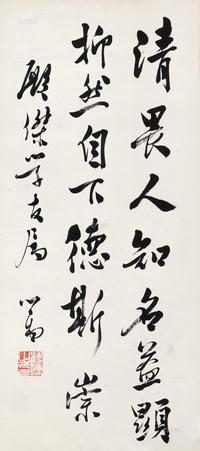 清畏人知名益顯
抑然自下德斯崇
殿傑學友屬
心畬